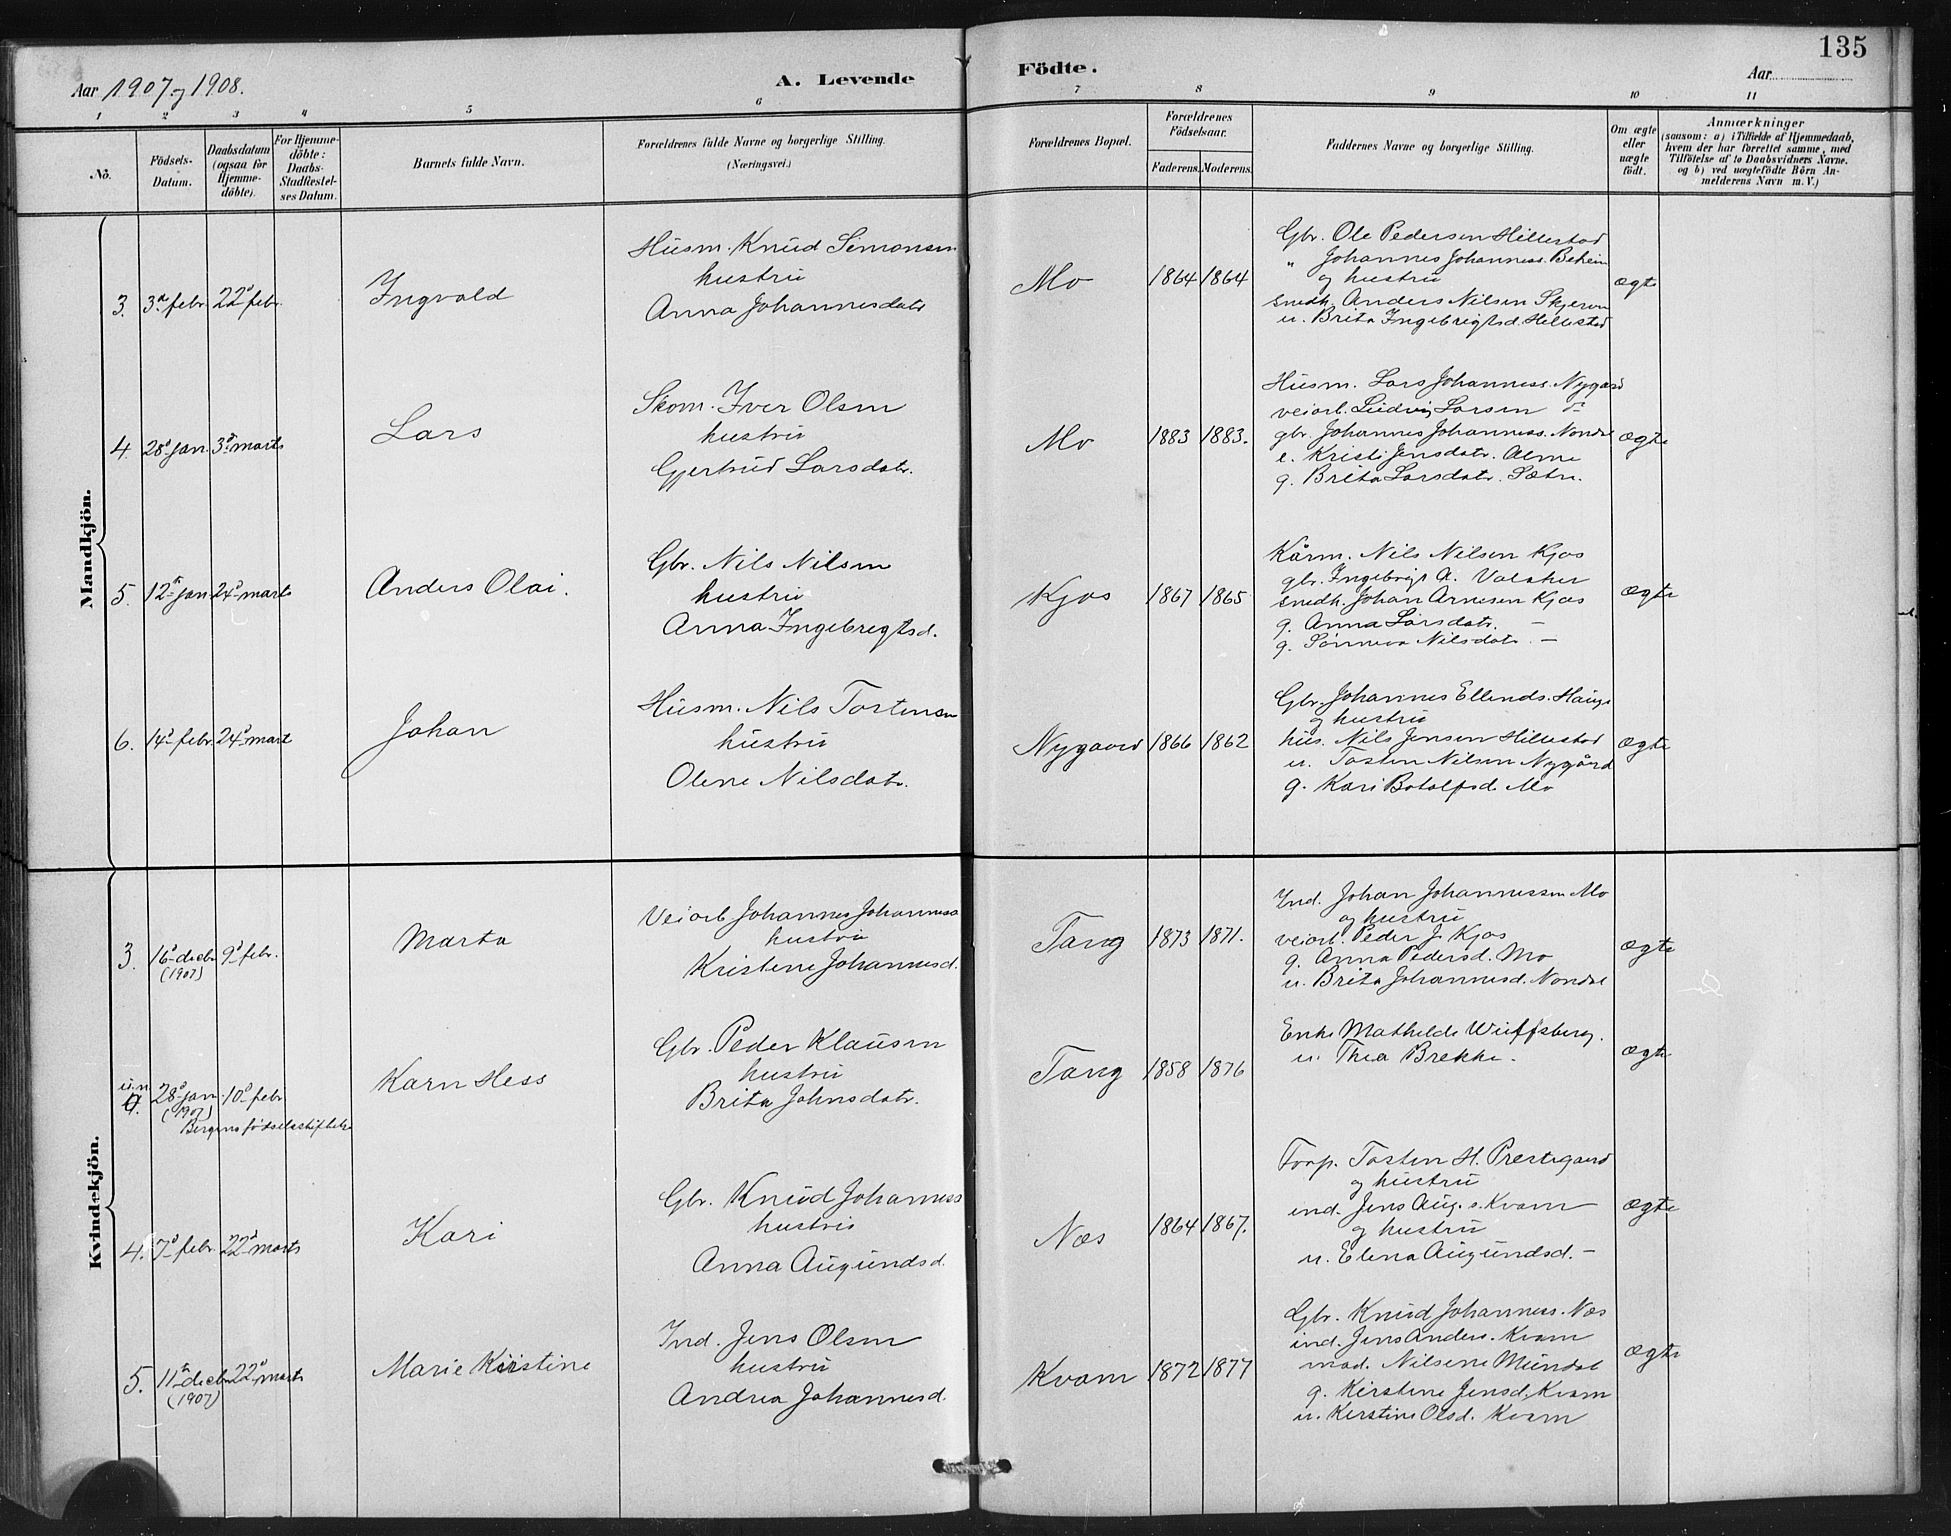 135
Aar 1907 og 1908.
A. Levende
Födte.
Aar
1 2 3 4 5 6 7 8 9 10 11
No.
Födsels-
Datum.
Daabsdatum
(ogsaa for
Hjemme-
döbte).
For Hjemme-
döbte:
Daabs-
Stadfæstel-
ses Datum.
Barnets fulde Navn.
Forældrenes fulde Navne og borgerlige Stilling.
(Næringsvei.)
Forældrenes Bopæl.
Forældrenes
Födselsaar.
Faderens. Moderens.
Faddernes Navne og borgerlige Stilling.
Om ægte
eller
uægte
födt.
Anmærkninger
(saasom: a) i Tilfælde af Hjemmedaab,
hvem der har forrettet samme, med
Tilföielse af to Daabsvidners Navne.
og b) ved uægtefödte Börn An-
melderens Navn m. V.)
Mandkjön.
3. 3d febr. 22d febr.
Ingvald
Husm. Knud Simonsen
hustru
Anna Johannesdatr
Mo 1864 1864
Gbr. Ole Pedersen Hillestad
" Johannes Johanness.
og hustru
snedk. Anders Nilsen
u. Brita Ingebrigtsd. Hillestad
ægte
4. 28d jan. 3d marts
Lars
Skom. Iver Olsen
hustru
Gjertrud Larsdatr.
Mo 1883 1883.
Husm. Lars Johanness. Nygard
veiarb. Ludvig Larsen
gbr. Johannes Johanness. Nondal
e. Kristi Jensdatr. Alme
g. Brita Larsdatr. Sætn.
ægte
5. 12te jan. 24d marts
Anders Olai.
Gbr. Nils Nilsen
hustru
Anna Ingebregtsd.
Kjos 1867 1865
Kårm. Nils Nilsen Kjos
gbr. Ingebrigt A.
snedk. Johan Arnesen Kjos
g. Anna Larsdatr. –
g. Sønneva Nilsdatr. –
ægte
6. 14d febr. 24d mart
Johan
Husm. Nils Tostensen
hustru
Olene Nilsdatr.
Nygaard 1866 1862
Gbr. Johannes Ellends. Hauge
og hustru
hus. Nils Jensen Hillestad
u. Tosten Nilsen Nygård
g. Kari Botolfsd. Mo
ægte
Kvindekjön.
3. 16d decbr. 9d febr.
(1907)
Marta
Veiarb. Johannes Johanness
hustru
Kristene Johannesd.
Tang 1873 1871.
Ind. Johan Johannessen Mo
og hustru
veiarb. Peder J. Kjos
g. Anna Pedersd. Mo
u. Brita Johannesd. Nondal
ægte
u.n. 28d jan. 10d febr
(1907)
Bergens fødselsstiftelse
Karn Hess
Gbr. Peder Klausen
hustru
Brita Johnsdatr.
Tang 1858 1876
Enke Mathilde Wulfsberg.
u. Thea Brekke.
ægte
4. 7d febr. 22d marts
Kari
Gbr. Knud Johanness
hustru
Anna Augundsd.
Næs 1864 1867.
Forp. Tosten H. Prestegaard
og hustru
ind. Jens Aug.s. Kvam
og hustru
u. Elena Augundsd. –
ægte
5. 11te decbr. 22d marts
(1907)
Marie Kirstine
Ind. Jens Olsen
hustru
Andrea Johannesd.
Kvam 1872 1877
Gbr. Knud Johanness. Næs
ind. Jens Anders. Kvam
mad. Nilsene Mundal
g. Kirstine Jensd. Kvam
u. Kerstine Olsd. Kvam
ægte